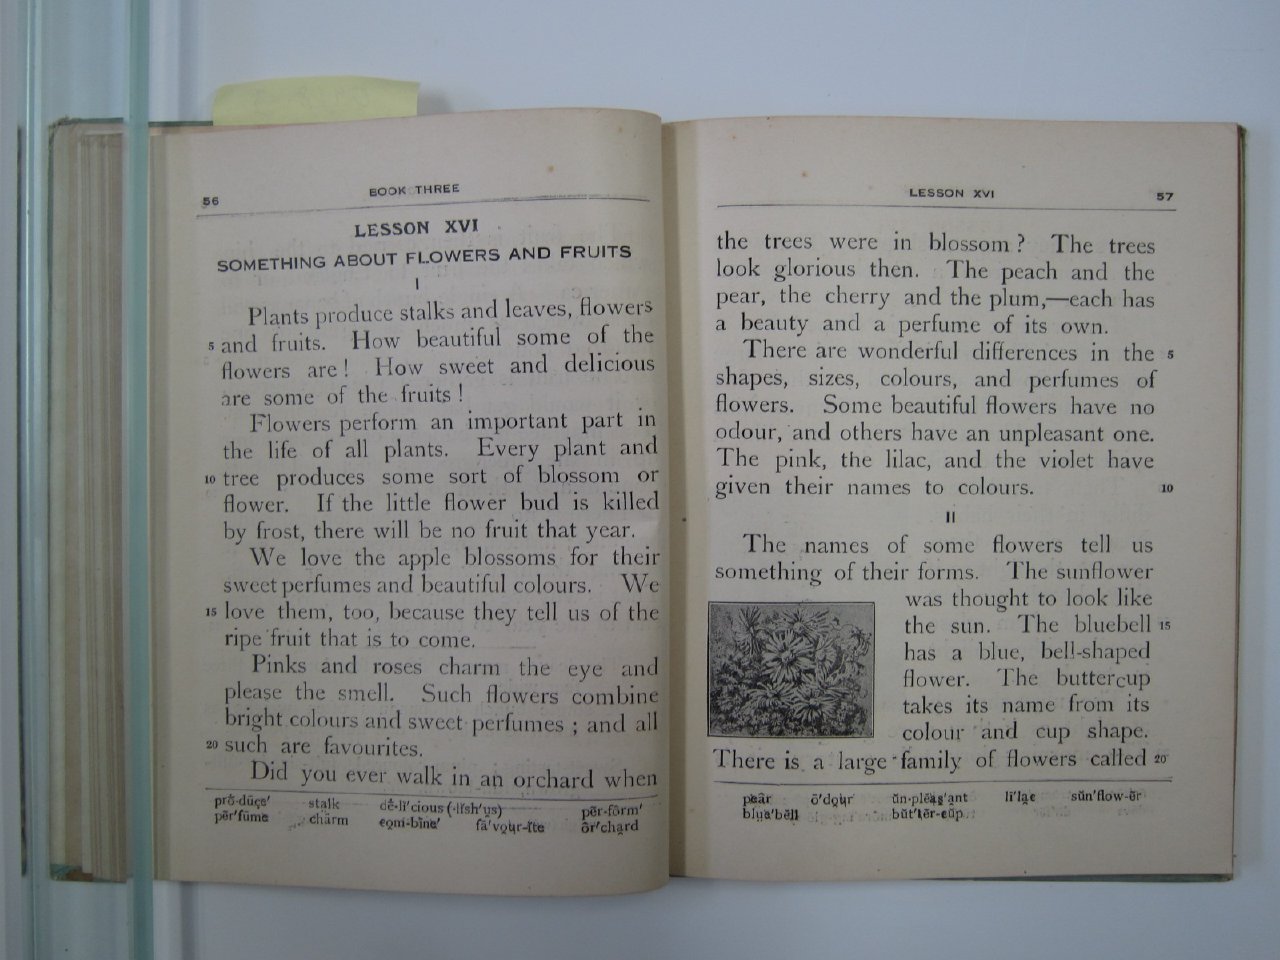 56
BOOK THREE
LESSON XVI
SOMETHING ABOUT FLOWERS AND FRUITS
I
Plants produce stalks and leaves, flowers
5 and fruits. How beautiful some of the
flowers are! How sweet and delicious
are some of the fruits!
Flowers perform an important part in
the life of all plants. Every plant and
10 tree produces some sort of blossom or
flower. If the little flower bud is killed
by frost, there will be no fruit that year.
We love the apple blossoms for their
sweet perfumes and beautiful colours. We
15 love them, too, because they tell us of the
ripe fruit that is to come.
Pinks and roses charm the eye and
please the smell. Such flowers combine
bright colours and sweet perfumes; and all
20 such are favourites.
Did you ever walk in an orchard when
prō-dūçe′ stalk dē-lĭ′cious (-lĭsh′ŭs) pẽr-fôrm′
pẽr′fūme chärm com-bīne′ fā′vour-ĭte ôr′chard
LESSON XVI
57
the trees were in blossom? The trees
look glorious then. The peach and the
pear, the cherry and the plum,—each has
a beauty and a perfume of its own.
There are wonderful differences in the 5
shapes, sizes, colours, and perfumes of
flowers. Some beautiful flowers have no
odour, and others have an unpleasant one.
The pink, the lilac, and the violet have
given their names to colours. 10
II
The names of some flowers tell us
something of their forms. The sunflower
was thought to look like
the sun. The bluebell 15
has a blue, bell-shaped
flower. The buttercup
takes its name from its
colour and cup shape.
There is a large family of flowers called 20
peâr ō′dour ŭn-pleas′ant lī′lac sŭn′flow-ẽr
blue′bĕll bŭt′tẽr-cŭp